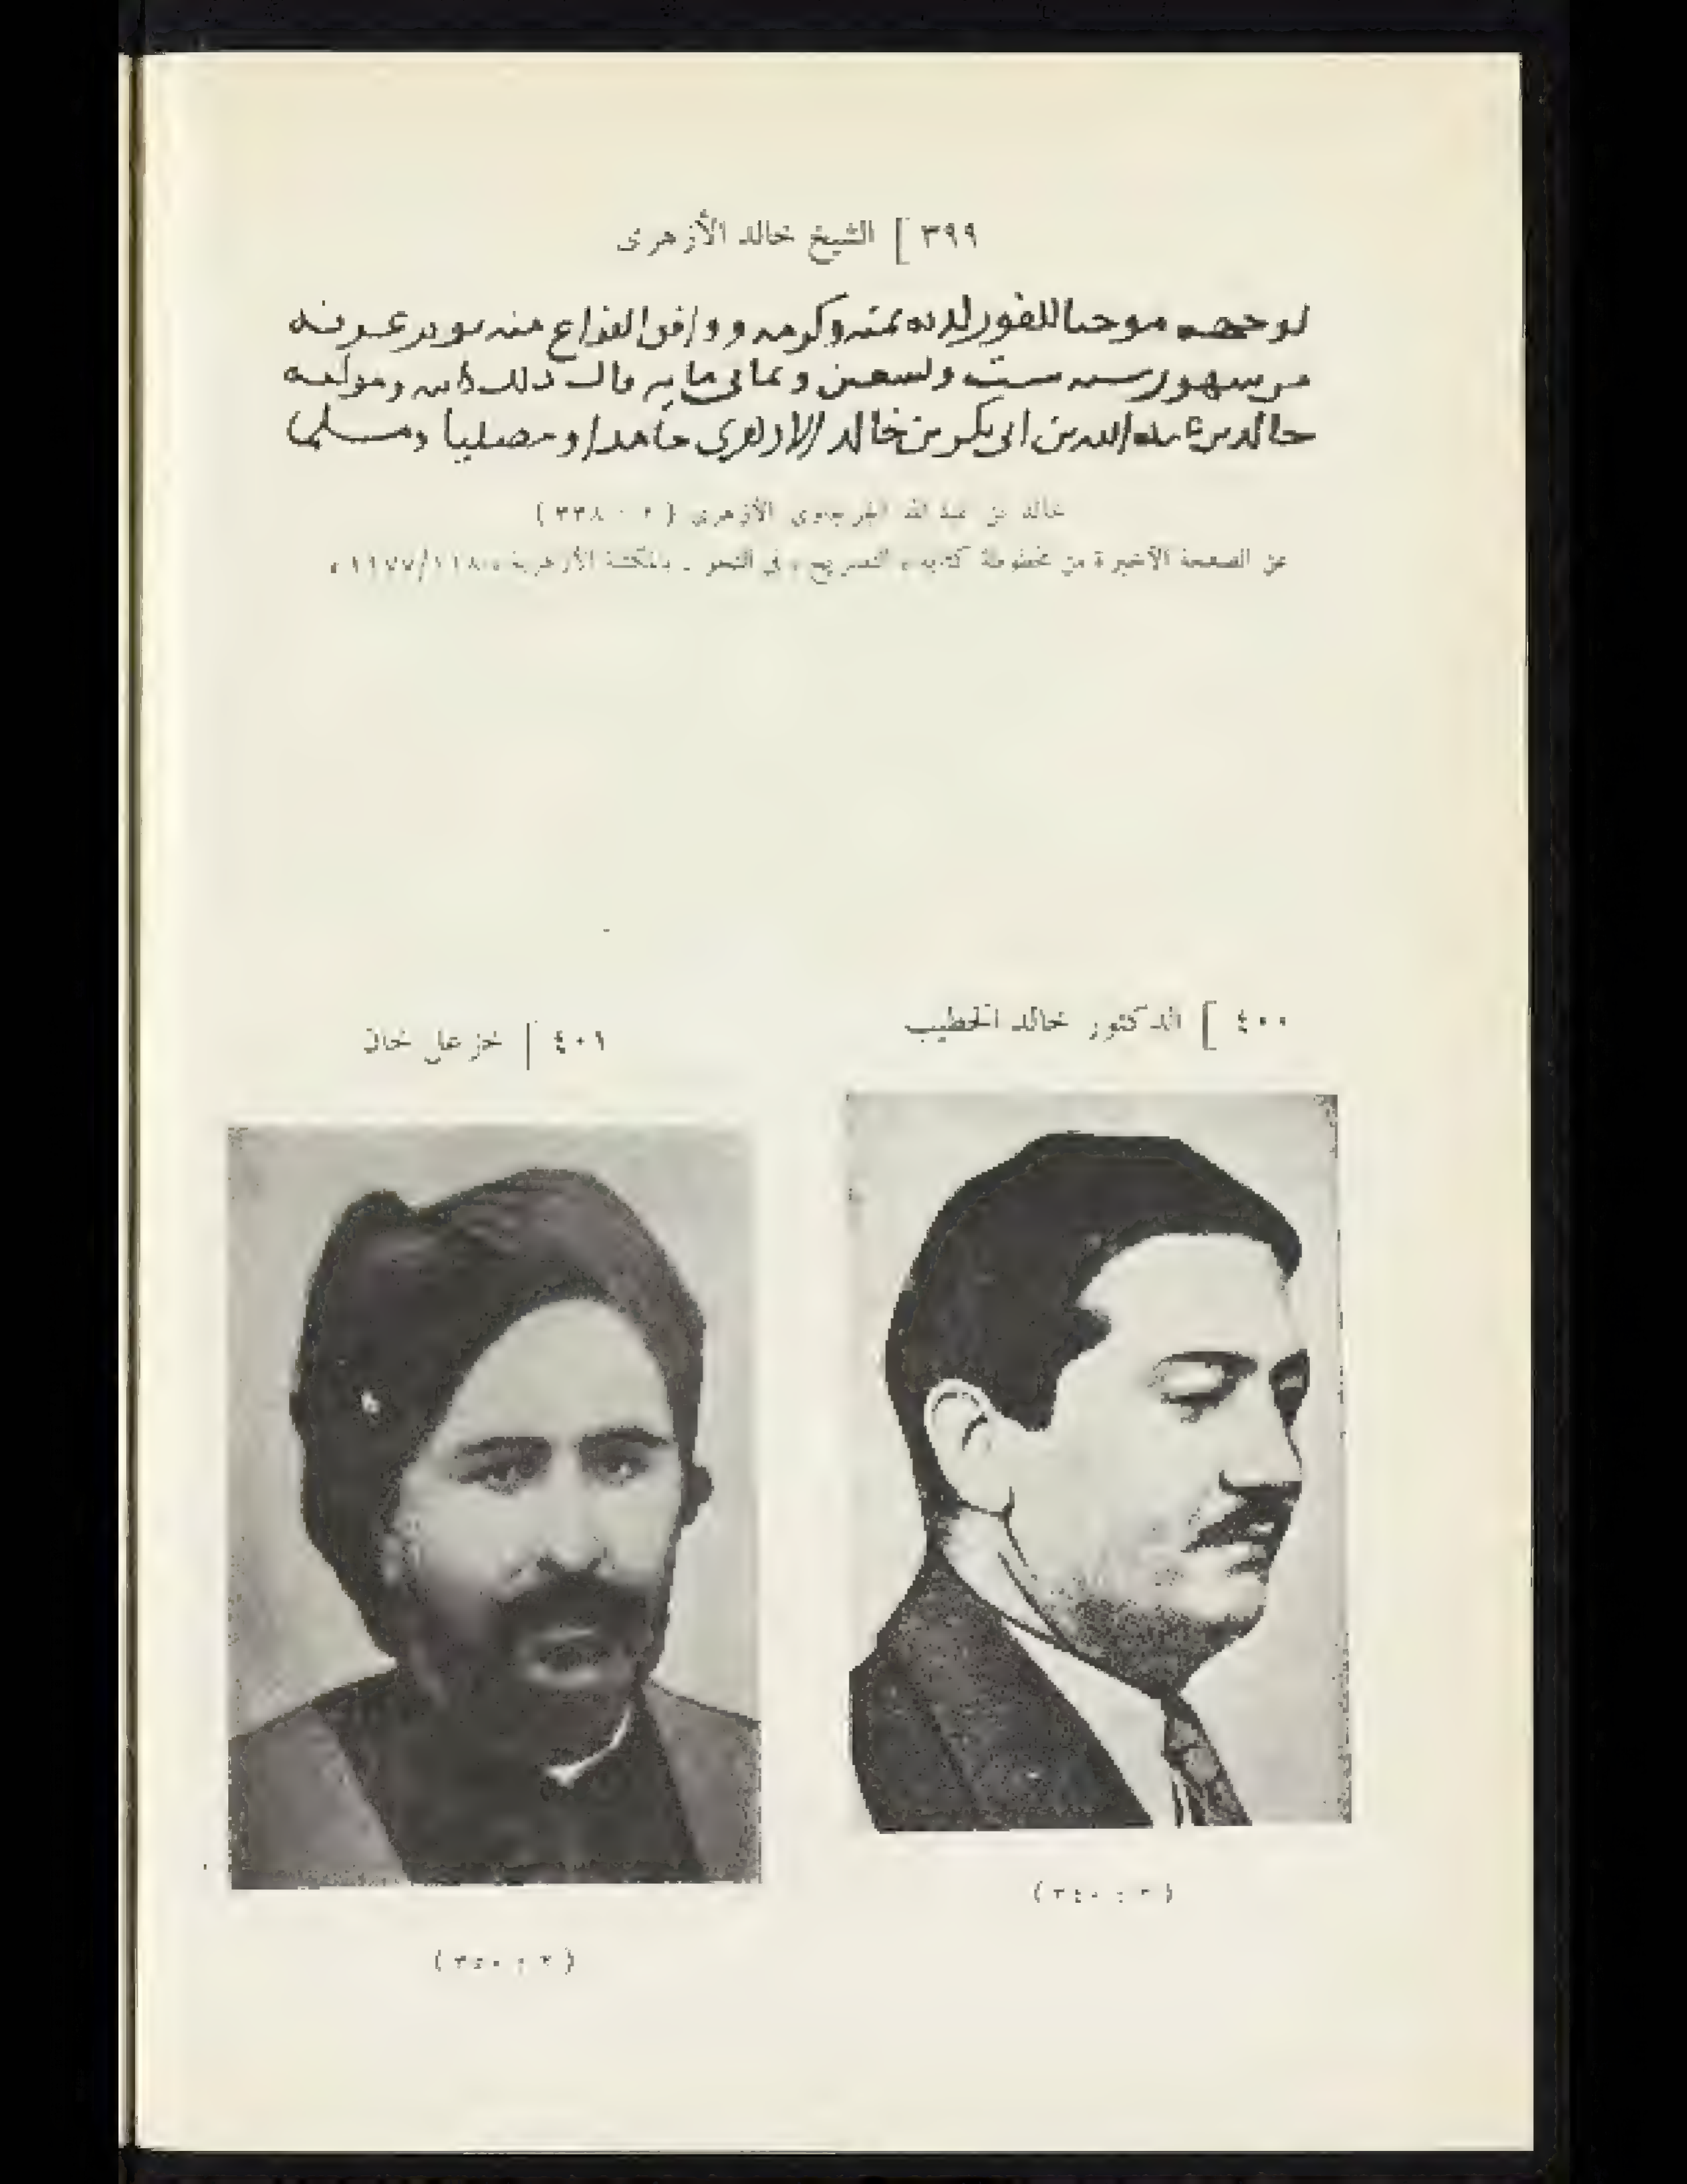 ٣٩٩ [ الشيخ خالد الأزهرى
لوجهه موجبا للفوز لديه بمنه وكرمه ووافق الفراغ منه يوم عرفة
من شهور سنه ست وتسعين وثمانى مايه قال ذلك كاتبه ومولفه
خالد بن عبد الله بن ابى بكر بن خالد الازهرى حامدا ومصليا ومسلما
خالد بن عبد الله الجرجاوى الأزهرى ( ٢ : ٣٣٨ )
عن الصفحة الأخيرة من مخطوطة كتابه « التصريح » فى النحو . بالمكتبة الأزهرية
٤٠٠ [ الدكتور خالد الخطيب
٤٠١ [ خزعل خان
( ٢ : ٣٤٠ )